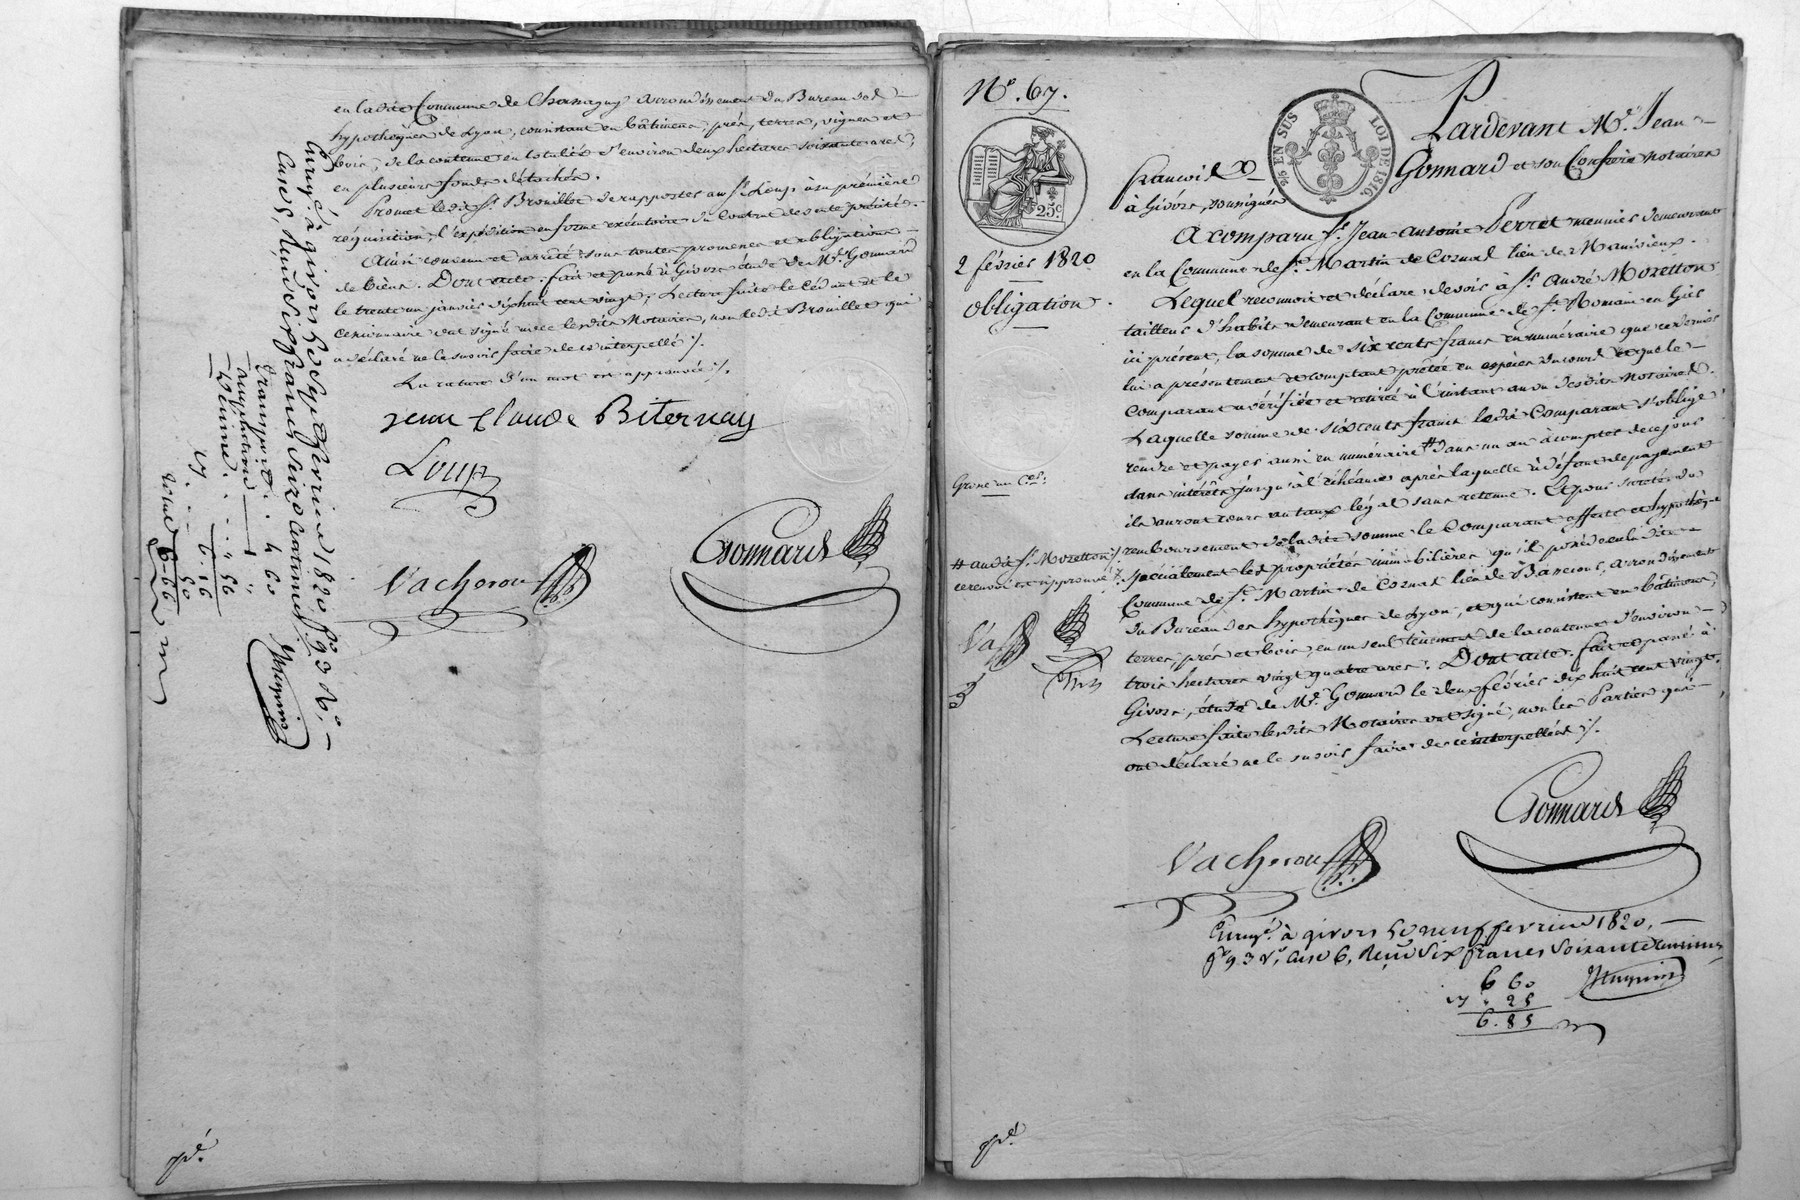 en ladite Commune de Chassagny arrondissement du Bureau des
hypothèques de Lyon, consistant en bâtimens, prés, terres, vignes et
bois, de la contenue en totalité d'environ deux hectares soixante ares,
en plusieurs fonds détachés.
Promet ledit Sr. Brouillet de rapporter au Sr. Loup à sa première
réquisition, l'expédition en forme exécutoire du Contrat de vente précité.
Ainsi convenu et arrêté sous toutes promesses et obligations
de biens. Dont acte. fait et passé à Givors étude de Me. Gonnard
le trente un janvier dix huit cent vingt; Lecture faite le Cédant et le
cessionnaire ont signé avec lesdits Notaires, non ledit Brouillet qui
a déclaré ne le savoir faire de ce interpellé ./.
La rature d'un mot est approuvée ./.
jean Claude Biternay
Loup
Vacheron
Gonnard
Enregé. à givors le sept fevrier 1820 fo. 93 Ro.
Case 1, Reçu six francs seize centimes
transport . 4 60
Quittance
6.16
50
total 6-66
pé.
No. 67.
25c
2 février 1820
Obligation.
EN SUS
LOI DE 1816.
Pardevant Me. Jean
François
Gonnard et son Confrère notaires
à Givors, soussignés
A comparu Sr. Jean Antoine Perret meunier demeurant
en la Commune de St. Martin de Cornas lieu de Manivieux.
Lequel reconnoit et déclare devoir à Sr. André Moretton
tailleur d'habits demeurant en la Commune de St. Romain en Giers
ici présent, la somme de six cents francs en numéraire que ce dernier
lui a présentement et comptant prêtée en espèces du cours et que le
Comparant a vérifiée et retirée à l'instant au vu desdits Notaires.
Laquelle somme de six cents francs ledit Comparant s'oblige
rendre et payer aussi en numéraire # dans un an à compter de ce jour
sans intérêts jusqu'à l'échéance après laquelle à défaut de payement
ils auront cours au taux légal sans retenue. Et pour sureté du
remboursement de ladite somme le Comparant affecte et hypothèque
spécialement les propriétés immobilières qu'il possède en ladite
Commune de St. Martin de Cornas lieu de Bancions, arrondissement
du Bureau des hypothèques de Lyon, et qui consistent en bâtimens,
terres, prés et bois, en un seul tènement de la contenue d'environ
trois hectares vingt quatre ares. Dont acte. fait et passé à
Givors, étude de Me. Gonnard le deux février dix huit cent vingt.
Lecture faite lesdits Notaires ont signé, non les Parties qui
ont déclaré ne le savoir faire de ce interpellées ./.
Grosse un Ces.
# audit Sr. Moretton ./.
ce renvoi est approuvé ./.
Va
Gonnard
Vacheron
Enregé. à givors le neuf fevrier 1820,
fo. 93 vo, case 6, Reçu six francs soixante centimes
6 60
25
6.85
pé.